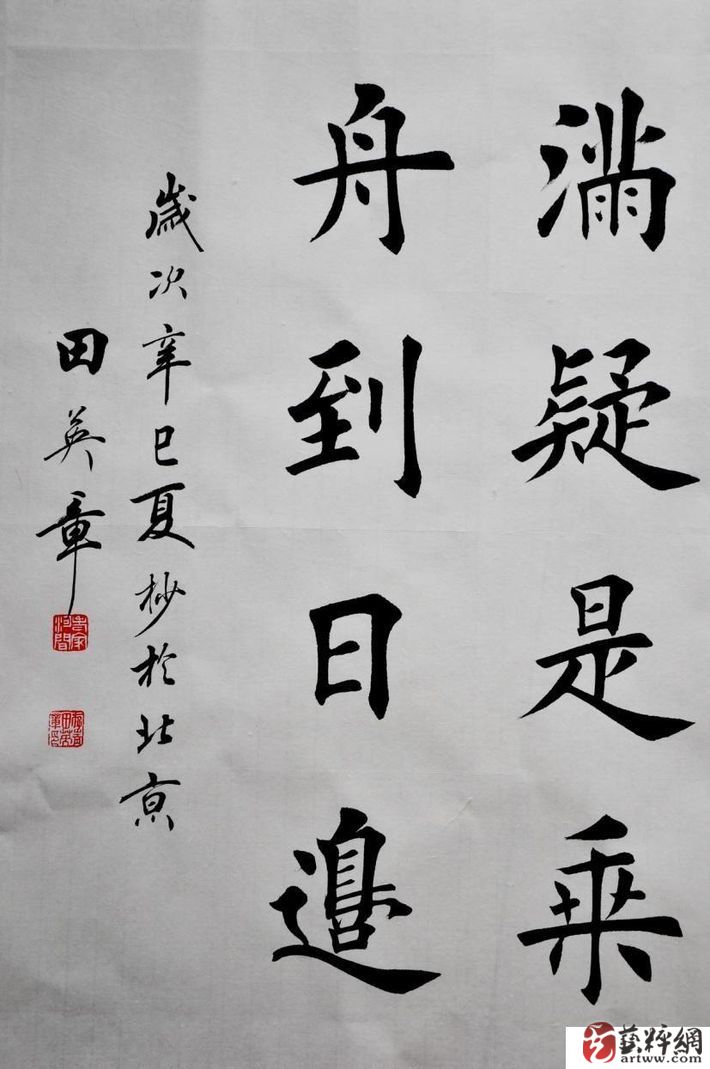 滿疑是乗
舟到日邊
歲次辛巳夏杪於北京
田英章
藝粹網
artww.com